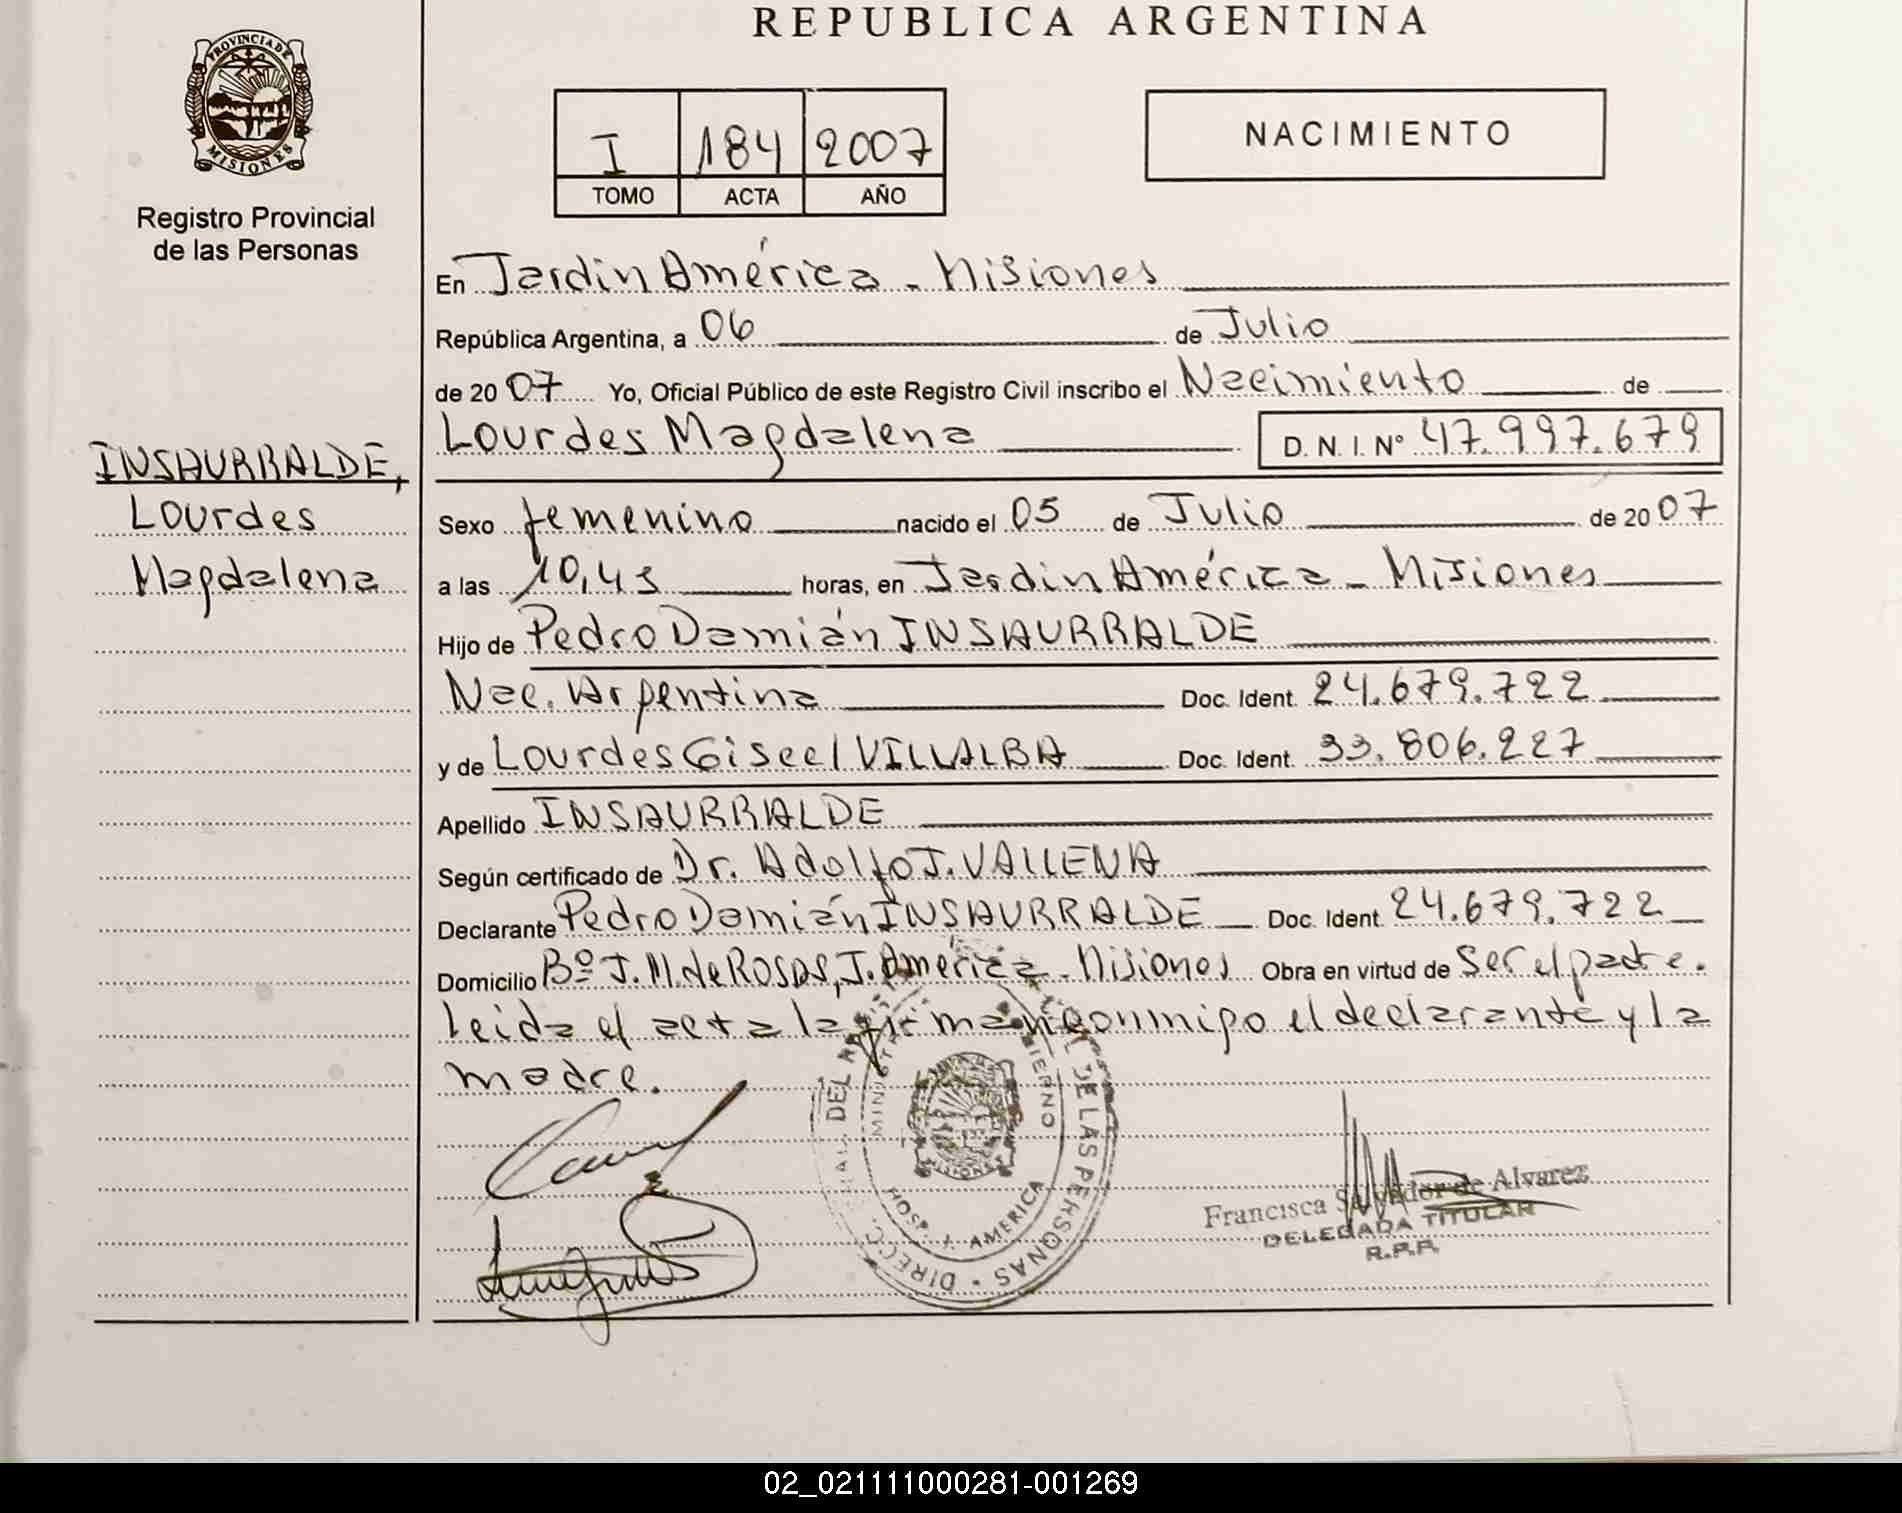 REPUBLICA ARGENTINA
PROVINCIA DE
MISIONES
Registro Provincial
de las Personas
I 184 2007
TOMO ACTA AÑO
NACIMIENTO
En Jardin América - Misiones
República Argentina, a 06 de Julio
de 2007 Yo, Oficial Público de este Registro Civil inscribo el Nacimiento de
Lourdes Magdalena D. N. I. Nº 47.997.679
INSAURRALDE,
Lourdes
Magdalena
Sexo femenino nacido el 05 de Julio de 2007
a las 10,43 horas, en Jardin América - Misiones
Hijo de Pedro Damián INSAURRALDE
Nac. Argentina Doc. Ident. 24.679.722
y de Lourdes Giseel VILLALBA Doc. Ident. 33.806.227
Apellido INSAURRALDE
Según certificado de Dr. Adolfo J. VALLENA
Declarante Pedro Damián INSAURRALDE Doc. Ident. 24.679.722
Domicilio Bº J.M. de ROSAS, J. América - Misiones Obra en virtud de Ser el padre.
Leida el acta la firman conmigo el declarante y la
madre.
DE LAS PERSONAS
HOSP. J. AMERICA
MISIONES
Francisca Salvador de Alvarez
DELEGADA TITULAR
R.P.P.
02_021111000281-001269